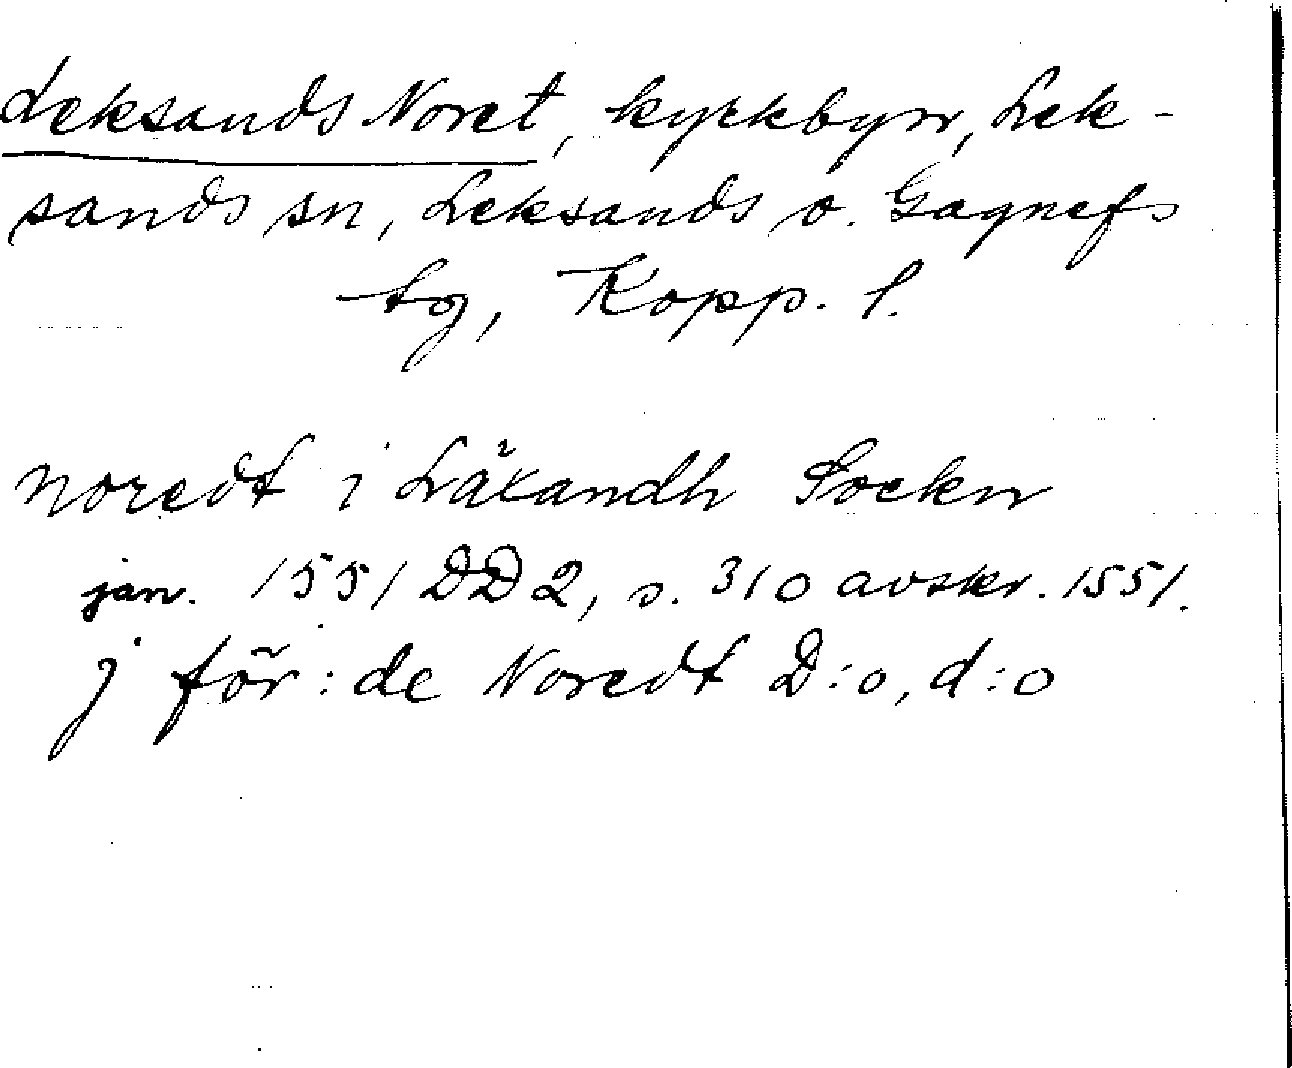 Leksands Noret, kyrkbyn, Lek-
sands sn, Leksands o. Gagnefs
tg, Kopp. l.
noredt i Läxandh Sockn
jan. 1551 DD 2, s. 310 avskr. 1551.
j för: de Noredt D:o, d:o